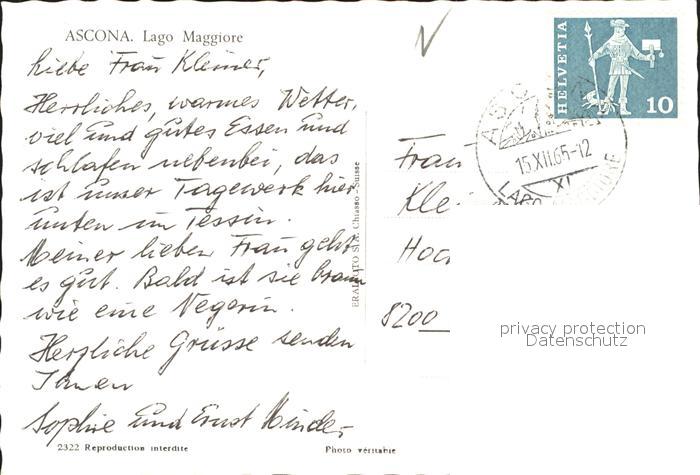 ASCONA. Lago Maggiore
Liebe Frau Kleiner,
Herrliches, warmes Wetter,
viel und gutes Essen und
schlafen nebenbei, das
ist unser Tagewerk hier
unten im Tessin.
Meiner lieben Frau geht
es gut. Bald ist sie braun
wie eine Negerin.
Herzliche Grüsse senden
Ihnen
Sophie und Ernst Minder
2322 Reproduction interdite
Photo véritable
Chiasso - Suisse
HELVETIA
10
15.XII.65-12
XI
LAGO
Frau
Klei
Hoc
8200
privacy protection
Datenschutz